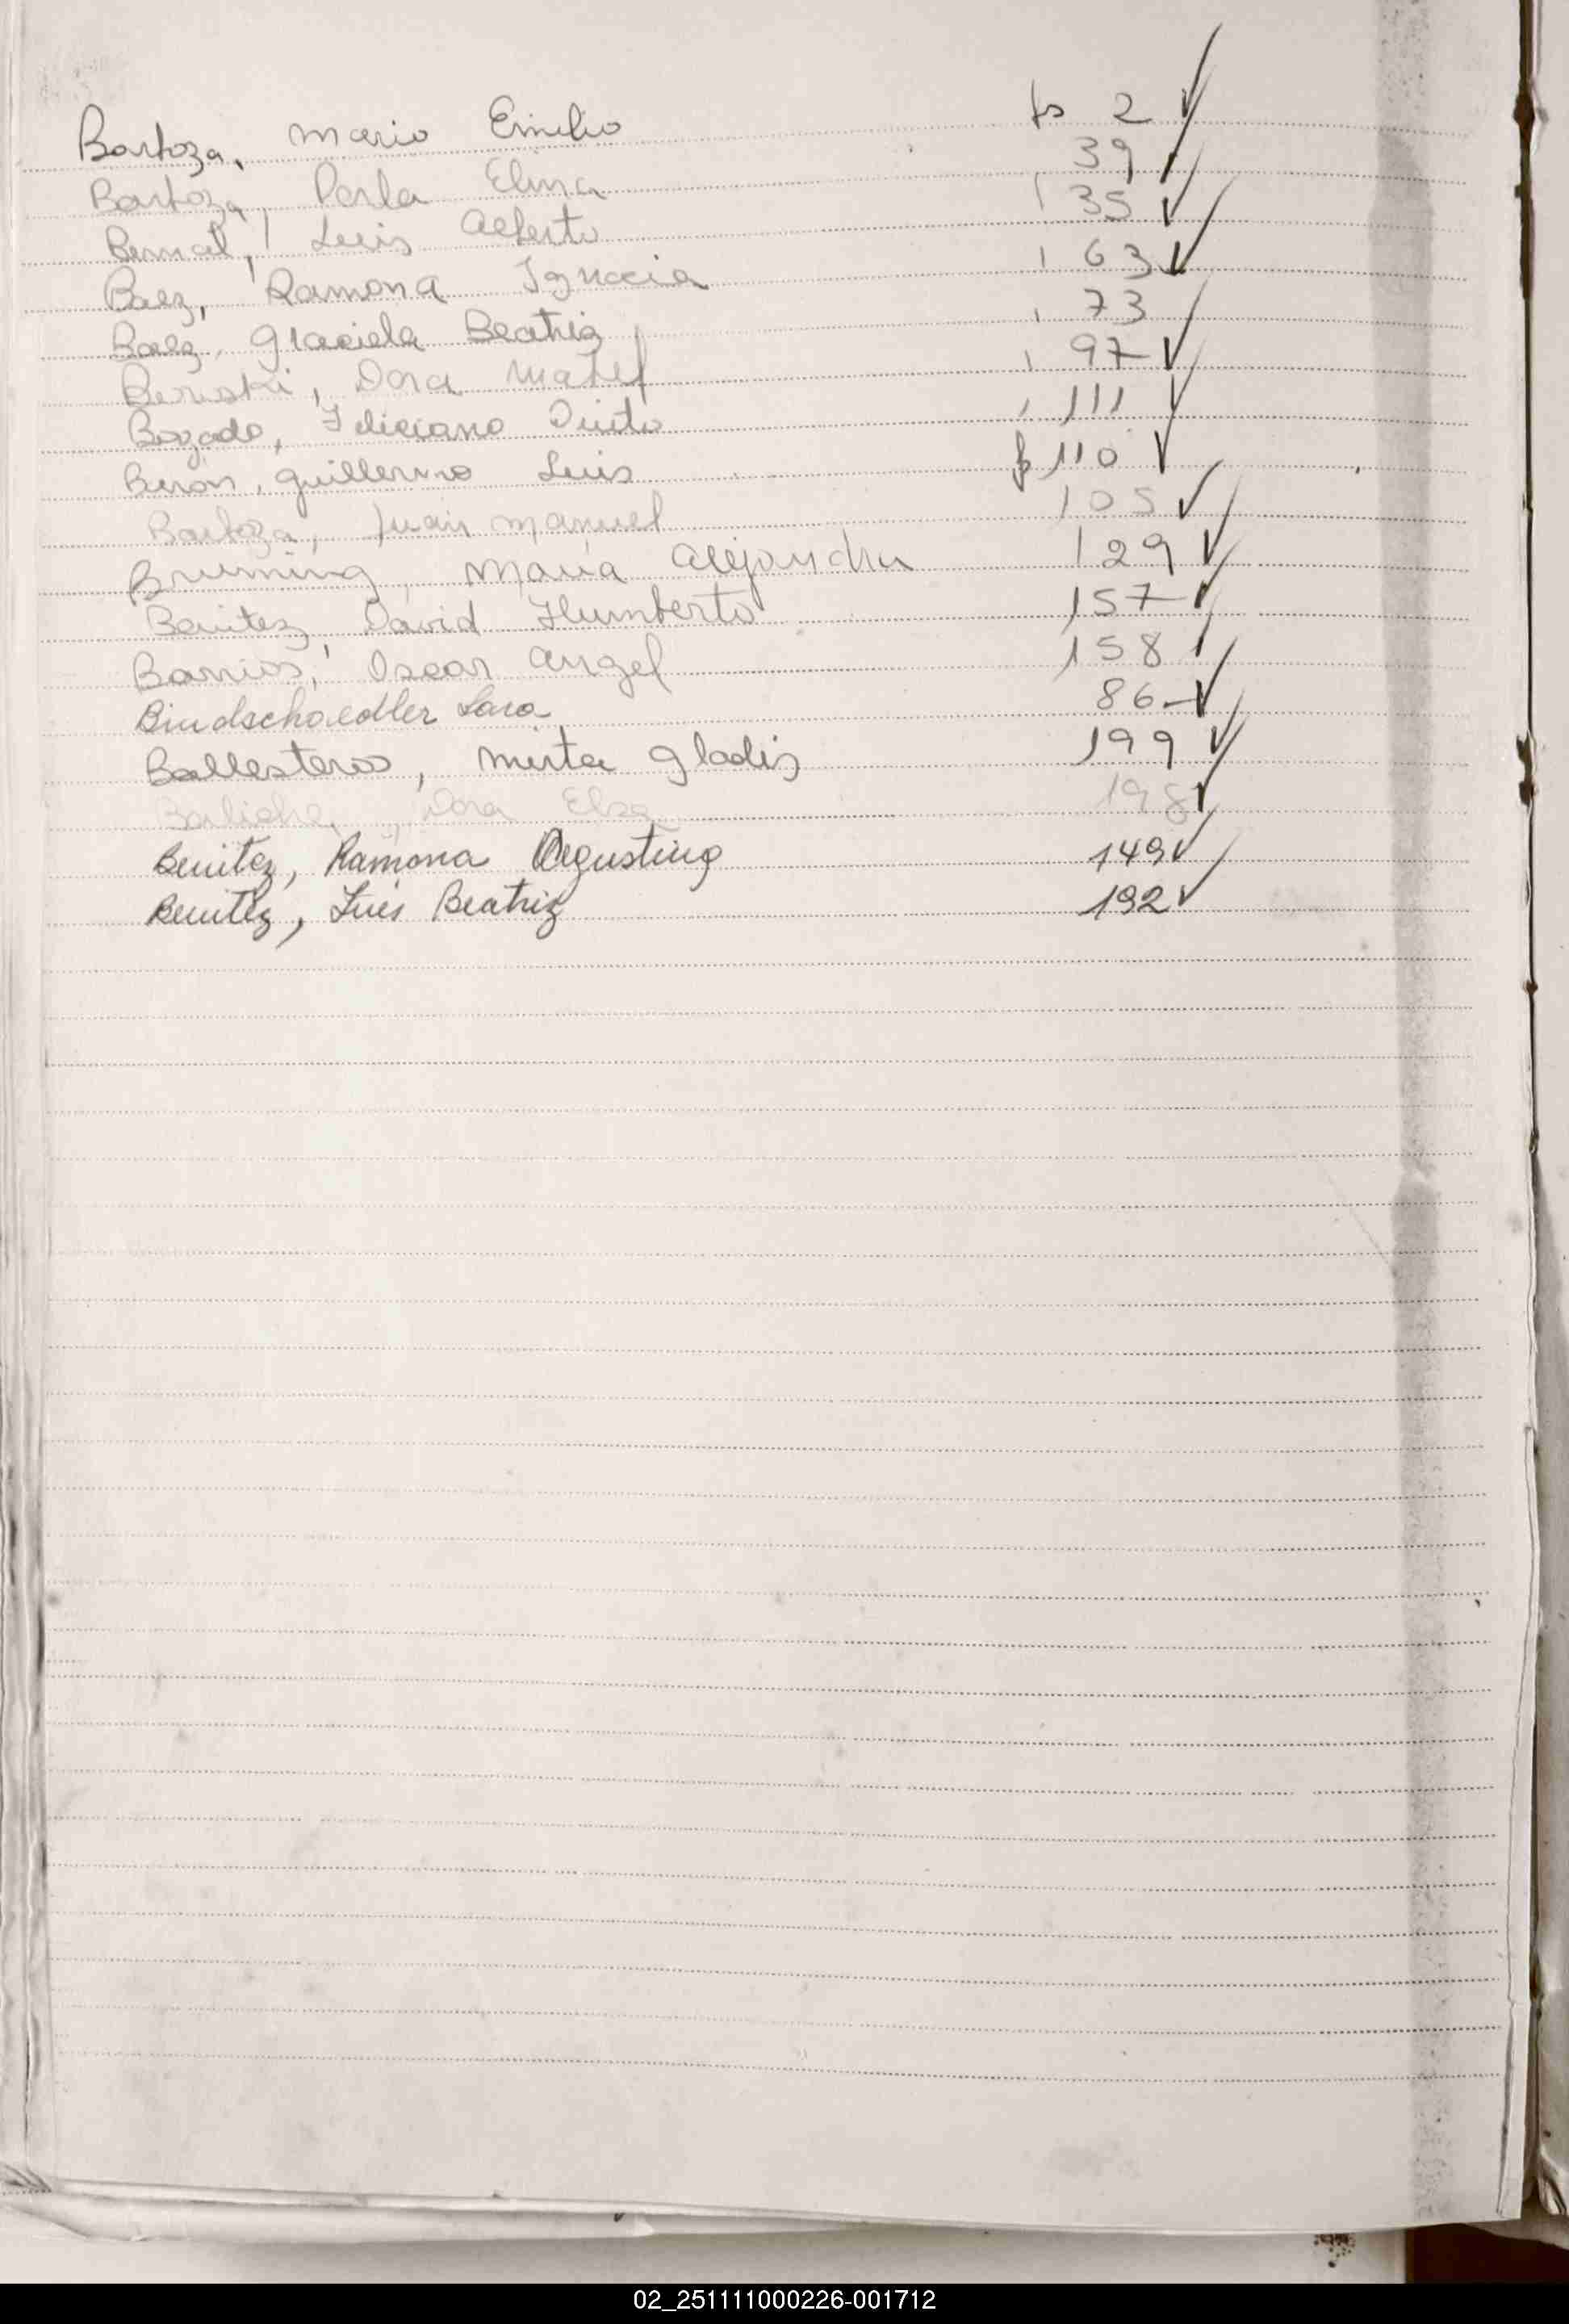 Bartoza, Mario Emilio fs 2 ✓
Bartoza, Perla Elina 39 ✓
Bernal, Luis Alberto 35 ✓
Baez, Ramona Ignacia 63 ✓
Baez, Graciela Beatriz 73
Beruski, Dora Mabel 97 ✓
Bozado, Feliciano Quito 111 ✓
Beron, Guillermo Luis f 110 ✓
Bartoza, Juan Manuel 105 ✓
Bruning, Maria Alejandra 129 ✓
Benitez, David Humberto 157 ✓
Barrios, Oscar Angel 158 ✓
Bindschaedler Sara 86 ✓
Ballesteros, Mirta Gladis 199 ✓
Dora Elsa 198 ✓
Benitez, Ramona Agustina 149 ✓
Benitez, Inés Beatriz 192 ✓
02_251111000226-001712